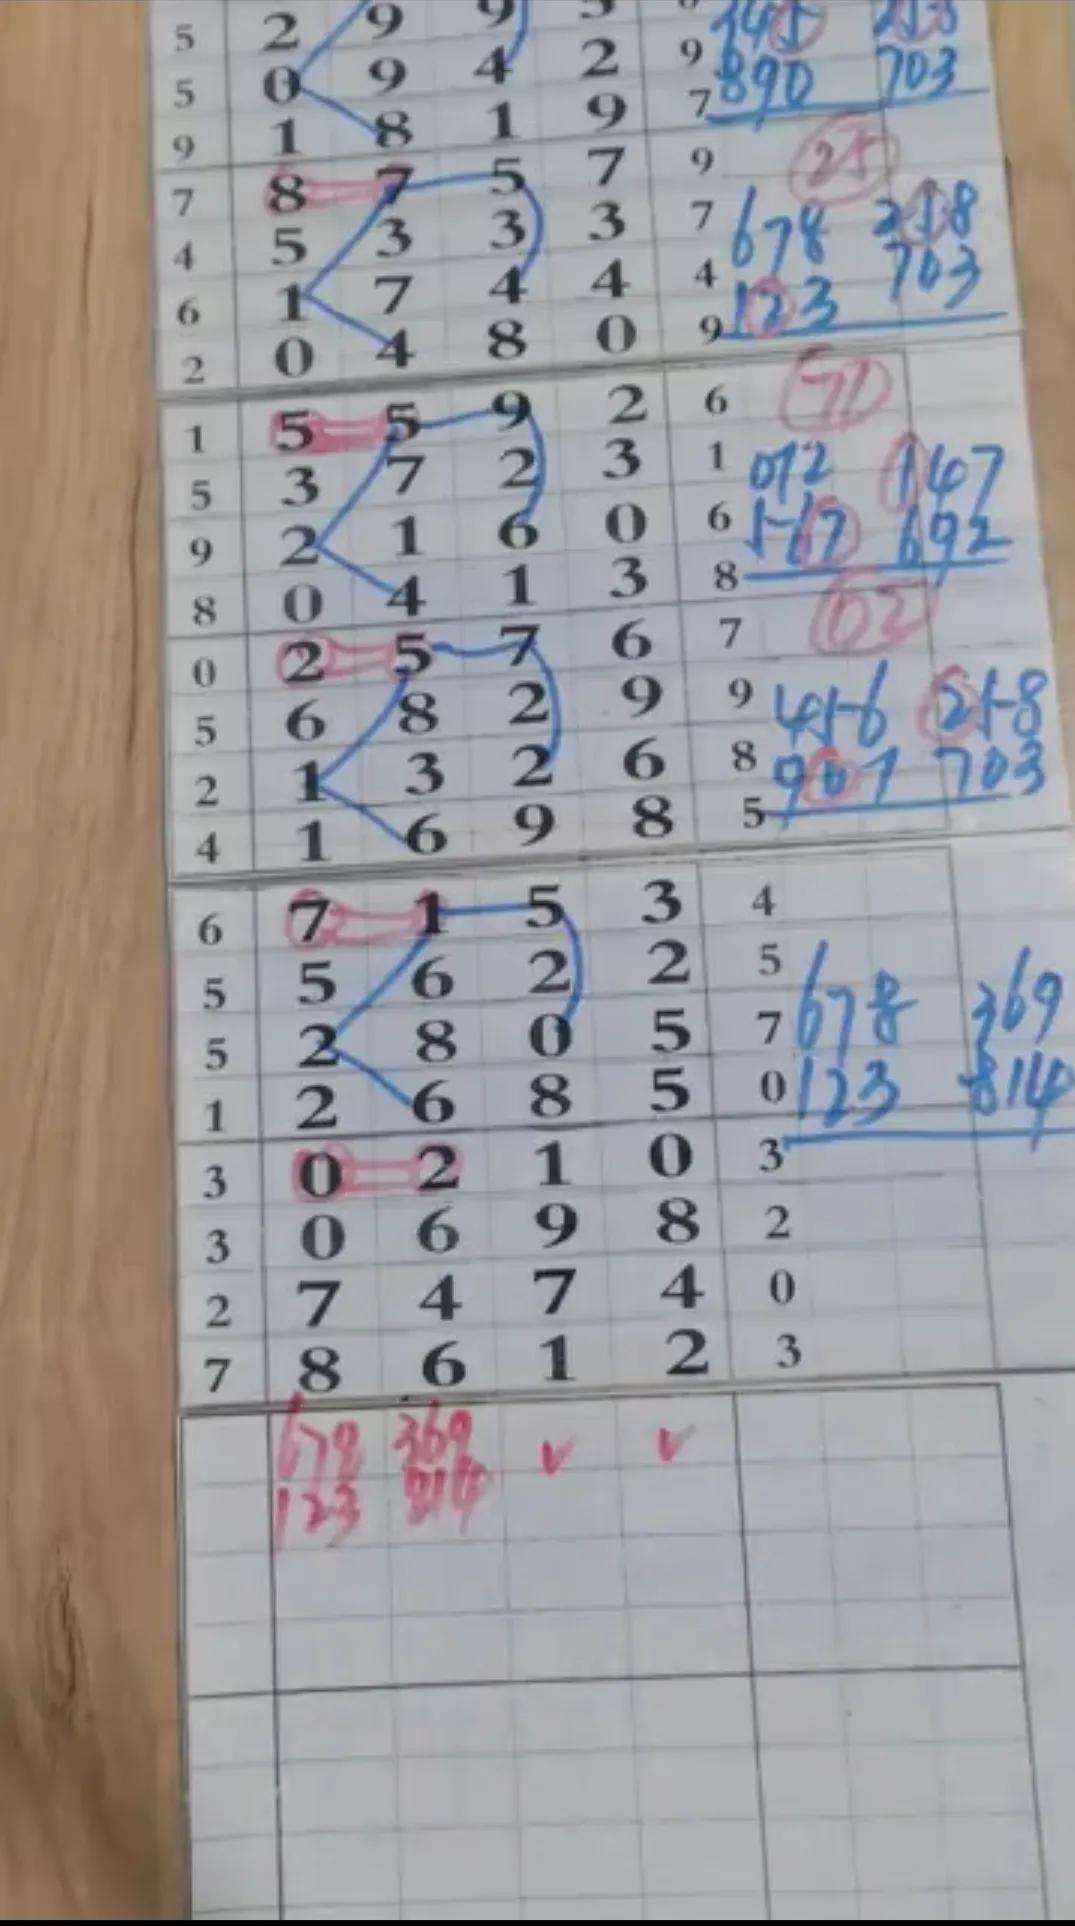 5 2 9 9
5 0 9 4 2 9 890 703
9 1 8 1 9 7
7 8 7 5 7 9 25
4 5 3 3 3 7 678
6 1 7 4 4 4 123 703
2 0 4 8 0 9
1 5 5 9 2 6 71
5 3 7 2 3 1 012 147
9 2 1 6 0 6 567 692
8 0 4 1 3 8
0 2 5 7 6 7 02
5 6 8 2 9 9 456 258
2 1 3 2 6 8 901 703
4 1 6 9 8 5
6 7 1 5 3 4
5 5 6 2 2 5
5 2 8 0 5 7 678 369
1 2 6 8 5 0 123 814
3 0 2 1 0 3
3 0 6 9 8 2
2 7 4 7 4 0
7 8 6 1 2 3
678 369 ✓ ✓
123 814